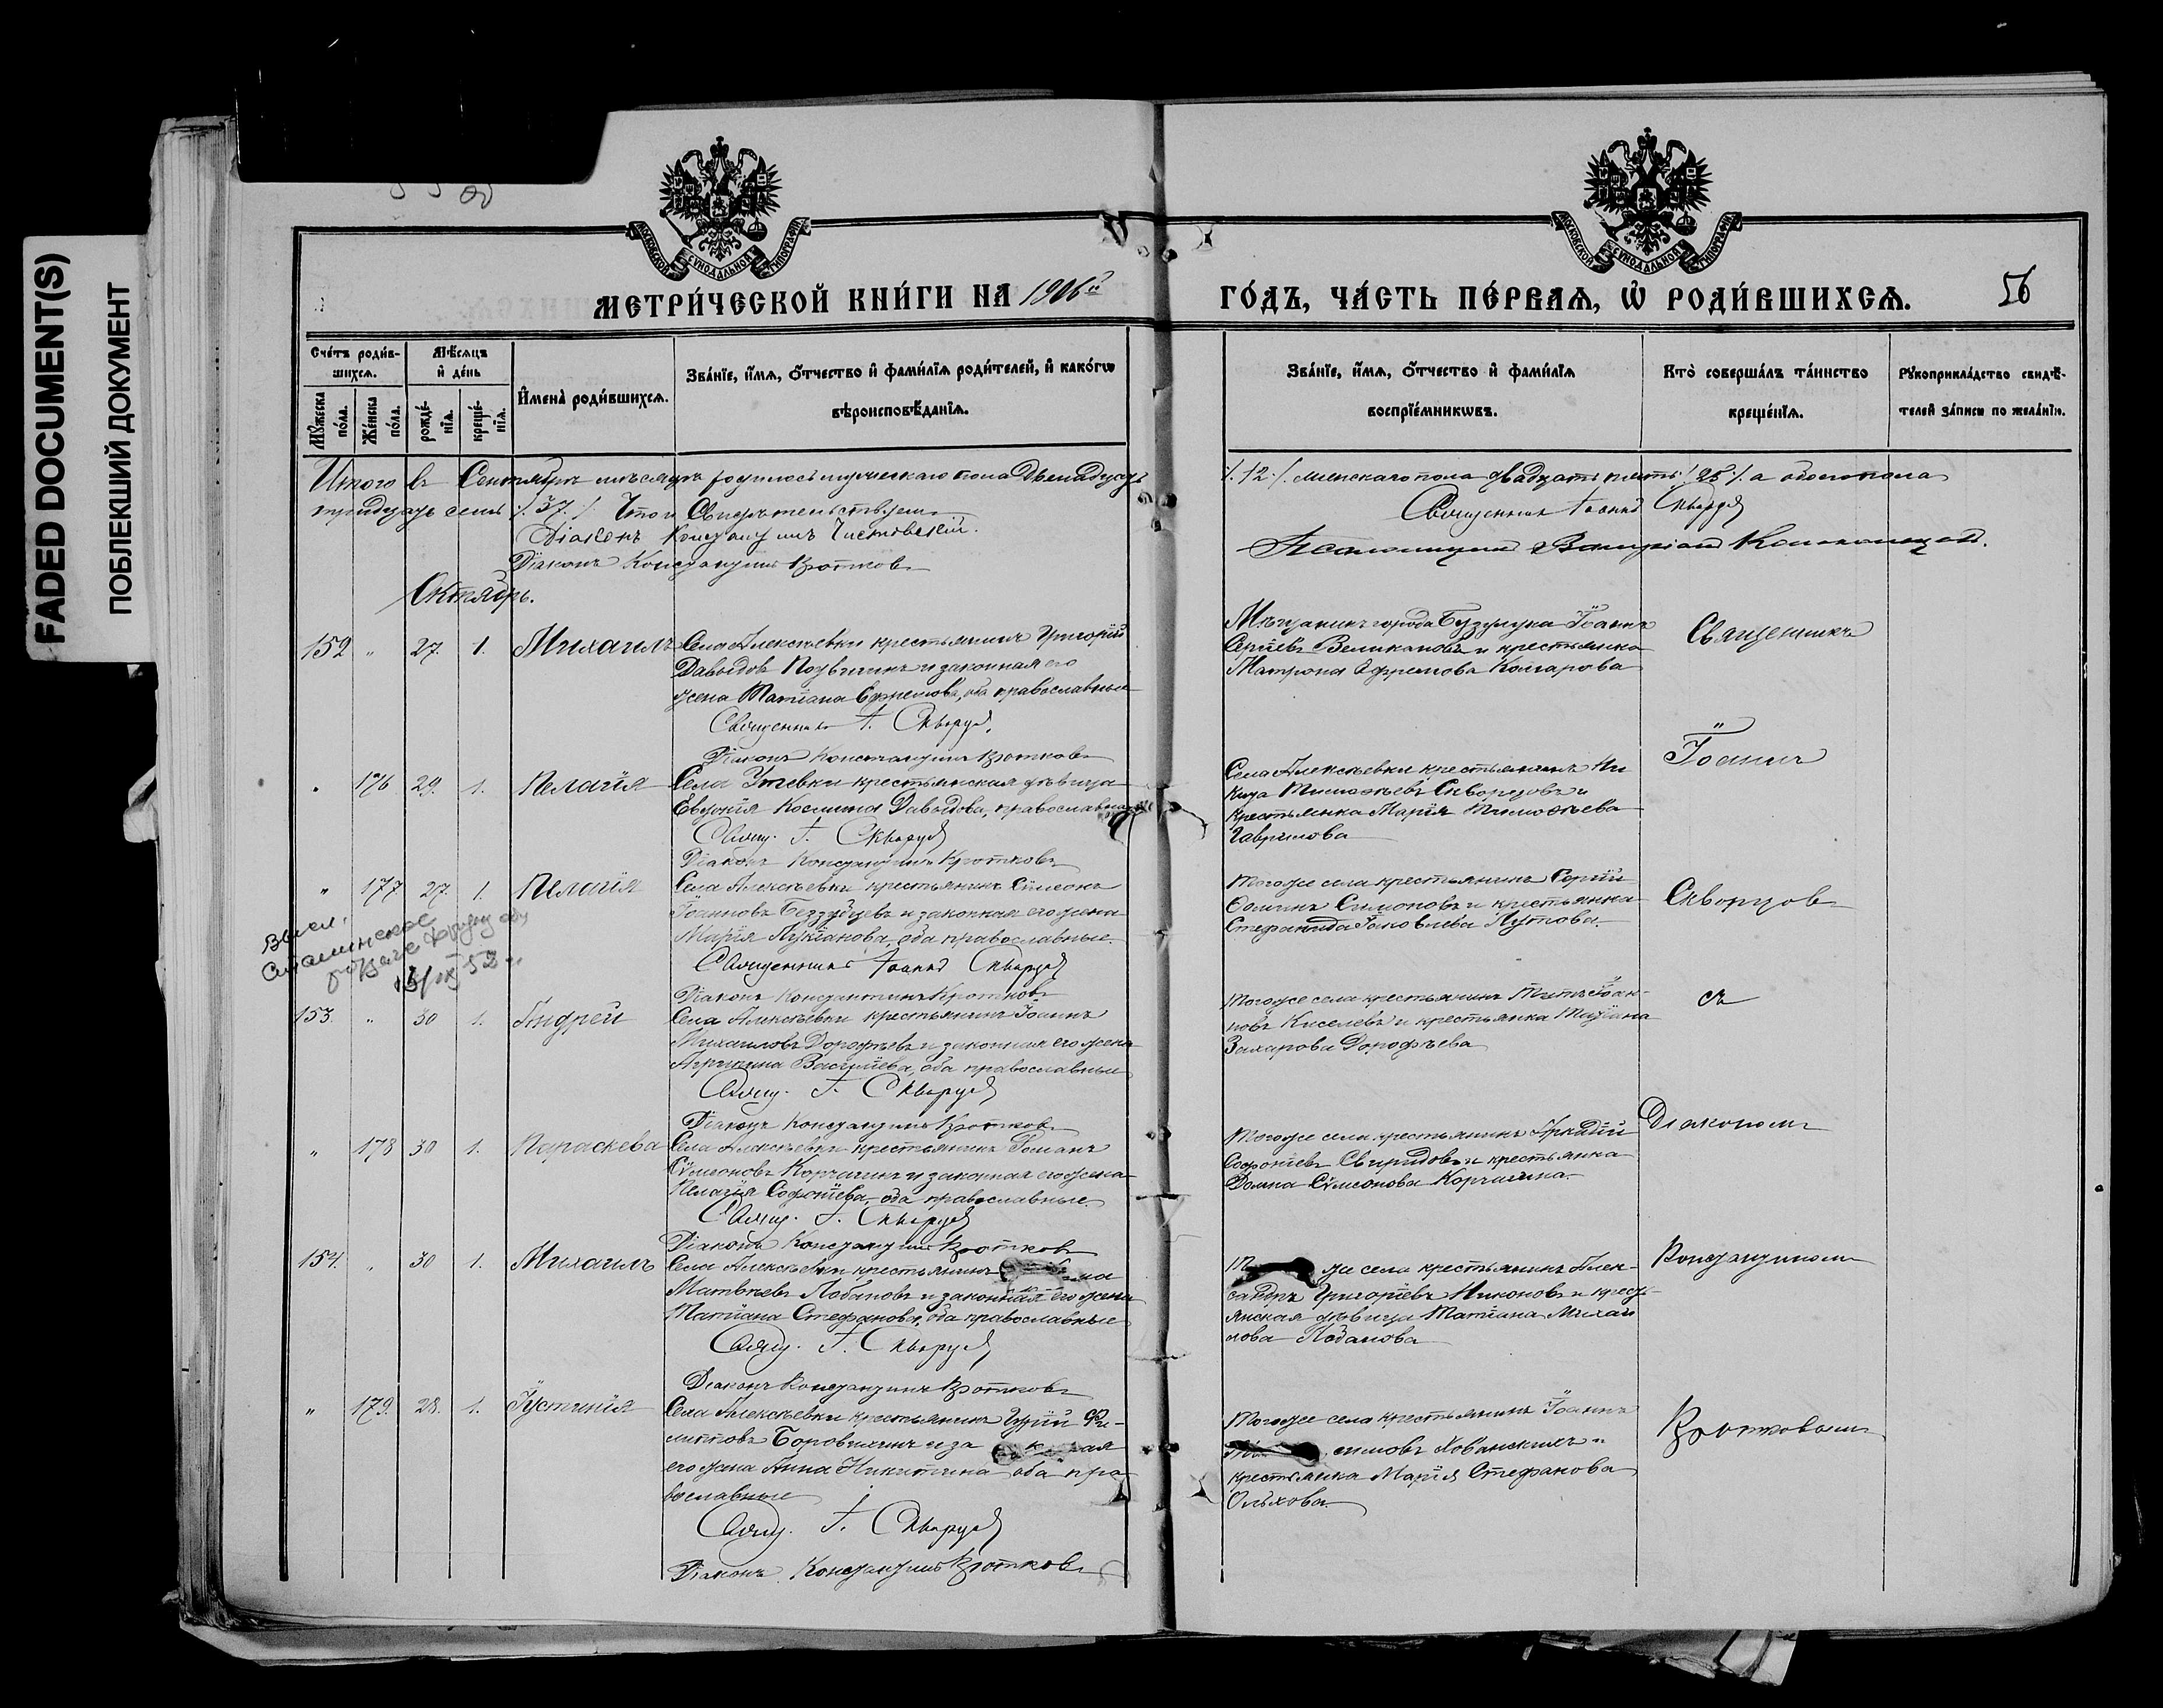 FADED DOCUMENT(S)
ПОБЛЕКШИЙ ДОКУМЕНТ
МОСКОВСКОЙ СѴНОДАЛЬНОЙ ТИПОГРАФІИ
МОСКОВСКОЙ СѴНОДАЛЬНОЙ ТИПОГРАФІИ
МЕТРИ́ЧЕСКОЙ КНИ́ГИ НА 1906й
ГО́ДЪ, ЧА́СТЬ ПЕ́РВАѦ, Ѡ РОДИ́ВШИХСѦ.
56
Сче́тъ роди́в-
шихсѧ.
Мѣ́сѧцъ
и де́нь
Имена̀ роди́вшихсѧ.
Зва́нїе, и́мѧ, о́тчество и фами́лїѧ роди́телей, и како́гѡ
вѣроисповѣ́данїѧ.
Мꙋ́жеска по́ла.
Же́нска по́ла.
рожде́-нїѧ.
креще́-нїѧ.
Зва́нїе, и́мѧ, о́тчество и фами́лїѧ
воспрїе́мникѡвъ.
Кто̀ соверша́лъ та́инство
креще́нїѧ.
Рꙋкоприкла́дство свидѣ́-
телей за́писи по жела́нїю.
Итого въ Сентябрѣ мѣсяцѣ родилось мужескаго пола двенадцать
/.12./. женскаго пола двадцать пять /.25./. а обоего пола
тридцать семь /.37./. Что и Свидѣтельствуемъ
Священникъ Іоаннъ Скворцов
Діаконъ Константинъ
Псаломщикъ
Діаконъ Константинъ Кротковъ
Октябрь.
152 " 27. 1. Михаилъ
Села Алексѣевки крестьянинъ Григорій
Давыдовъ и законная его
жена Татіана Ефремова, оба православные
Священникъ І. Скворцов.
Діаконъ Константинъ Кротковъ
Мѣщанинъ города Бузулука Іоаннъ
Сергіевъ Великановъ и крестьянка
Матрона Ефремова Комарова
Священникъ
" 176 29. 1. Пелагія
Села Утевки крестьянская дѣвица
Евдокія Космина Давыдова, православная
Свящ. І. Скворцов
Діаконъ Константинъ Кротковъ
Села Алексѣевки крестьянинъ Ни
кита Тимоѳѣевъ Скворцовъ и
крестьянка Марія Тимоѳѣева
Гаврилова
Іоаннъ
" 177 27. 1. Пелагія
Села Алексѣевки крестьянинъ Сѵмеонъ
Іоанновъ Беззубцевъ и законная его жена
Марія Лукіанова, оба православные.
Священникъ Іоаннъ Скворцов
Діаконъ Константинъ Кротковъ
Того же села крестьянинъ Сергій
Ѳоминъ Симоновъ и крестьянка
Стефанида Іаковлева Лутова.
Скворцовъ
Сталинское
153. " 30 1. Андрей
Села Алексѣевки крестьянинъ Іоаннъ
Михаиловъ Дорофѣевъ и законная его жена
Агрипина Василіева, оба православные
Свящ. І. Скворцов
Діаконъ Константинъ Кротковъ
Того же села крестьянинъ Титъ Іоан-
новъ Киселевъ и крестьянка Татіана
Захарова Дорофѣева
съ
" 178 30 1. Параскева
Села Алексѣевки крестьянинъ Романъ
Сѵмеоновъ Корчагинъ и законная его жена
Пелагія Софоніева, оба православные.
Свящ. І. Скворцов
Діаконъ Константинъ Кротковъ
Того же села крестьянинъ Аркадій
Софоніевъ Свиридовъ и крестьянка
Домна Сѵмеонова Корчагина.
Діакономъ
154. " 30 1. Михаилъ
Села Алексѣевки крестьянинъ
Матвѣевъ Лобановъ и законная его жена
Татіана Стефанова, оба православные
Свящ. І. Скворцов
Діаконъ Константинъ Кротковъ
же села крестьянинъ Алек-
сандръ Григоріевъ Никоновъ и кресть-
янская дѣвица Татіана Михаи
лова Лобанова
Константиномъ
" 179. 28. 1. Іустинія
Села Алексѣевки крестьянинъ Гурій Фи-
липповъ Боровихинъ и за
его жена Анна Никитина оба пра
вославные
Свящ. І. Скворцов
Діаконъ Константинъ Кротковъ
Того же села крестьянинъ Іоаннъ
Хованскихъ и
крестьянка Марія Стефанова
Ольхова.
Кротковымъ